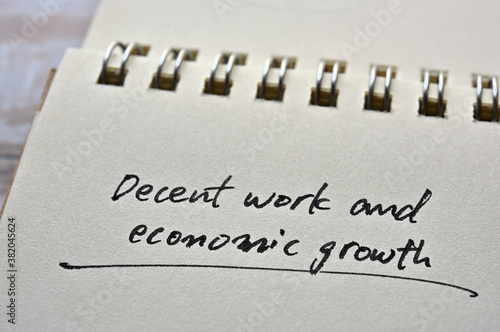 Decent work and
economic growth
Adobe Stock | #382045624